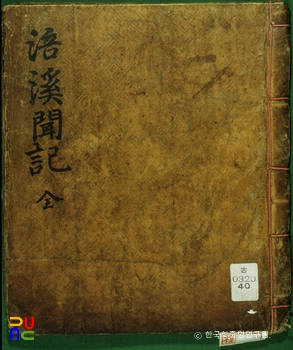 浯溪聞記
全
古
0320
40
© 한국학중앙연구원